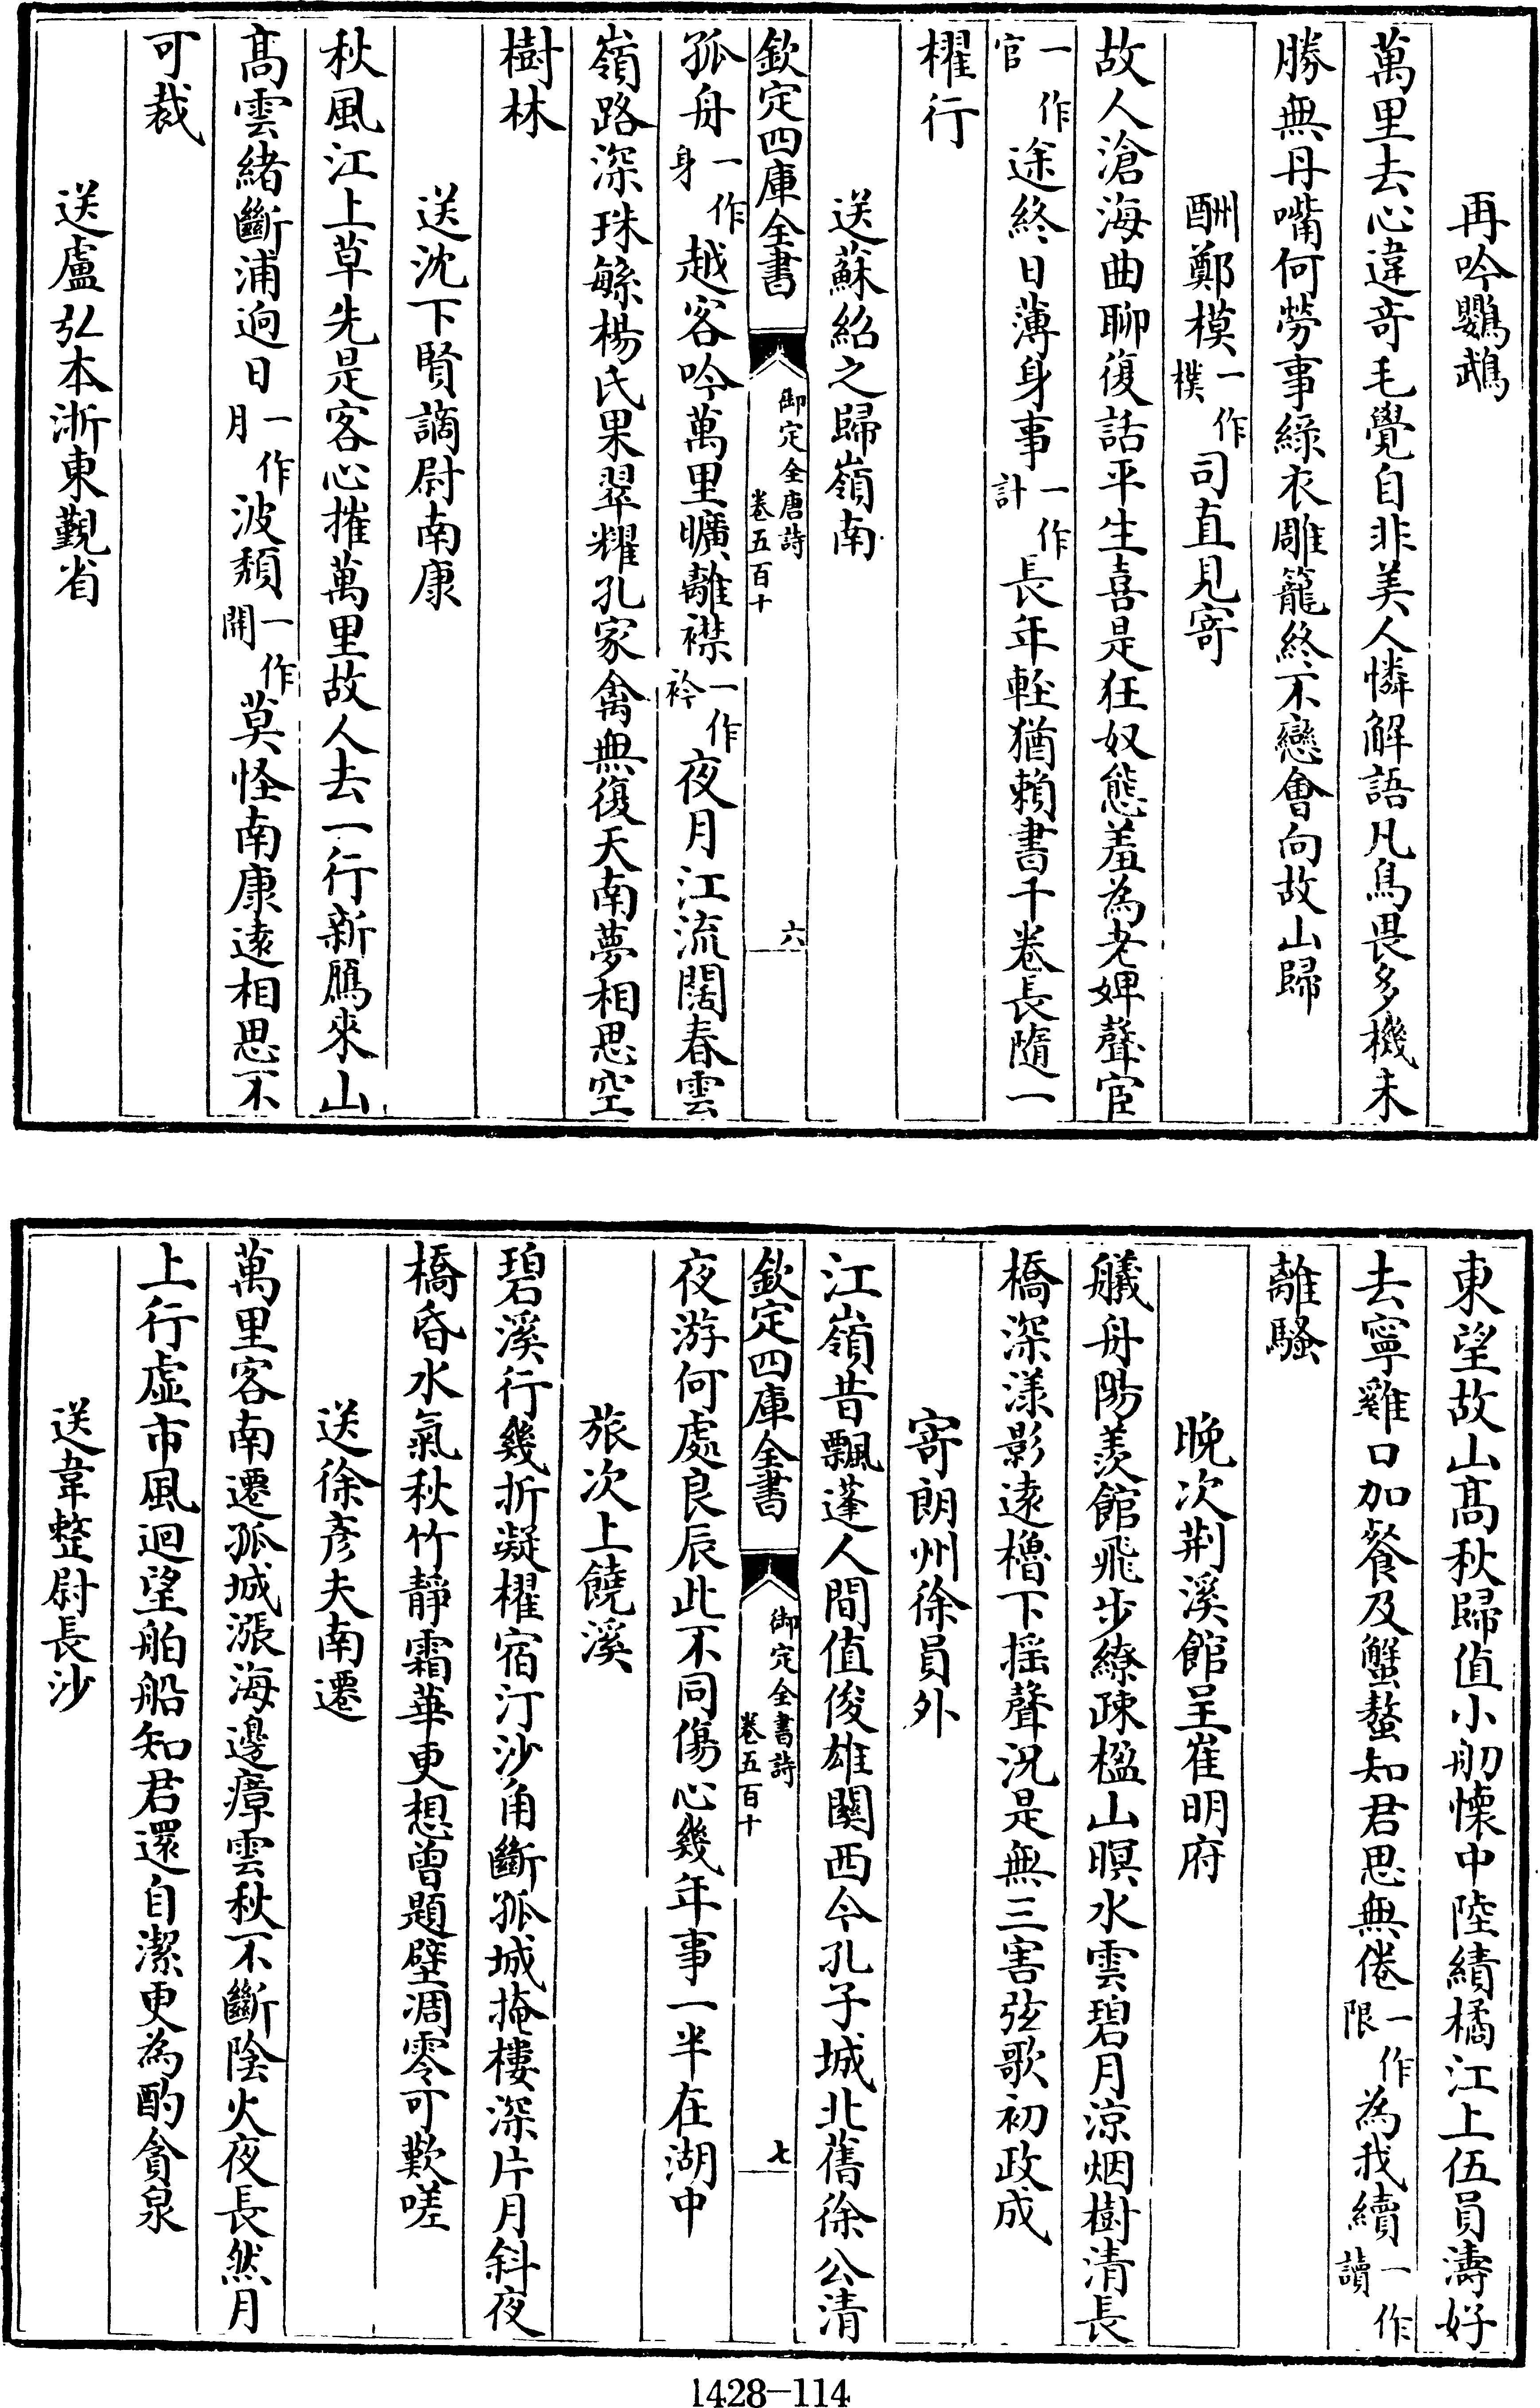 再吟鸚鵡
萬里去心違奇毛覺自非美人憐解語凡鳥畏多機未
勝無丹嘴何勞事緑衣雕籠終不戀會向故山歸
酬鄭模一作樸司直見寄
故人滄海曲聊復話平生喜是狂奴態羞為老婢聲宦
一作官途終日薄身事一作計長年輕猶賴書千卷長隨一
櫂行
送蘇紹之歸嶺南
欽定四庫全書 御定全唐詩 卷五百十 六
孤舟一作身越客吟萬里曠離襟一作衿夜月江流闊春雲
嶺路深珠繁楊氏果翠耀孔家禽無復天南夢相思空
樹林
送沈下賢謫尉南康
秋風江上草先是客心摧萬里故人去一行新鴈來山
髙雲緒斷浦迥日一作月波頽一作開莫怪南康遠相思不
可裁
送盧弘本浙東覲省
東望故山髙秋歸值小舠懷中陸績橘江上伍員濤好
去寧雞口加餐及蟹螯知君思無倦一作限為我續一作讀
離騷
晚次荆溪館呈崔明府
艤舟陽羨館飛步繚疎楹山暝水雲碧月涼烟樹清長
橋深漾影遠櫓下揺聲況是無三害弦歌初政成
寄朗州徐員外
江嶺昔飄蓬人間值俊雄關西今孔子城北舊徐公清
欽定四庫全書 御定全書詩 卷五百十 七
夜游何處良辰此不同傷心幾年事一半在湖中
旅次上饒溪
碧溪行幾折凝櫂宿汀沙角斷孤城掩樓深片月斜夜
橋昏水氣秋竹靜霜華更想曾題壁凋零可歎嗟
送徐彥夫南遷
萬里客南遷孤城漲海邊瘴雲秋不斷陰火夜長然月
上行虛市風迴望舶船知君還自潔更為酌貪泉
送韋整尉長沙
1428-114